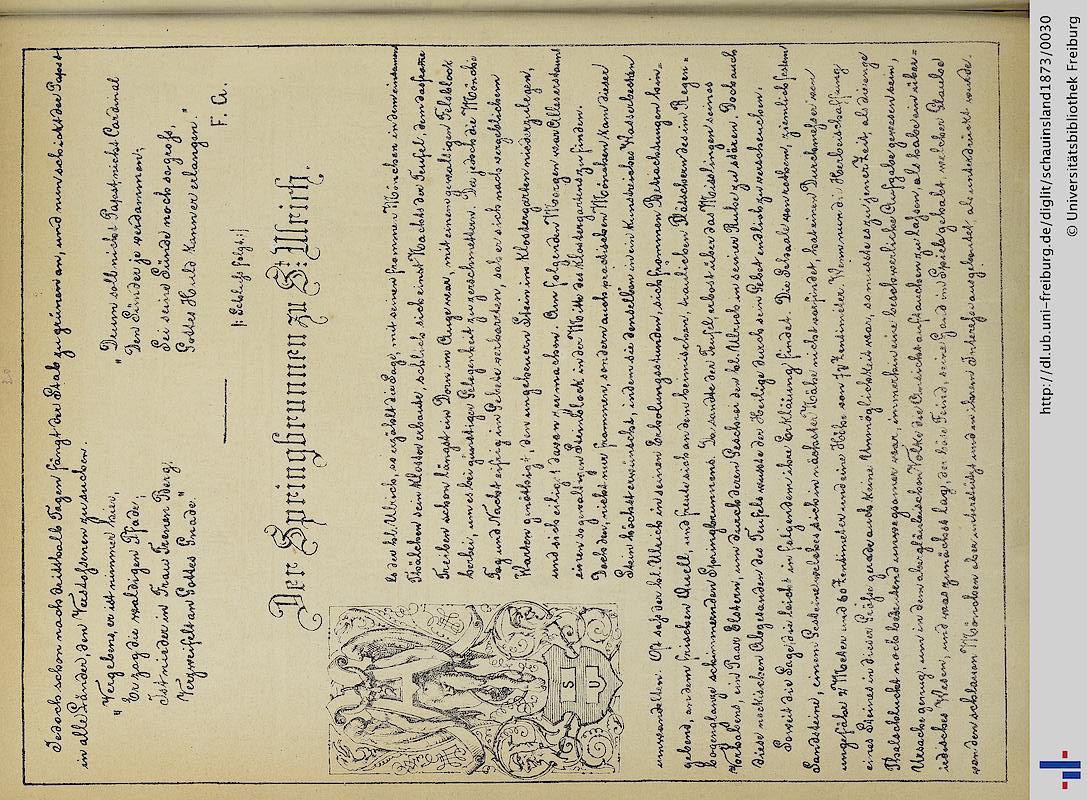 Jedoch schon nach dritthalb Tagen fängt der Stab zu grünen an, und nun schickt der Papst
in alle Länder, den Verstoßenen zu suchen.
„Vergebens, er ist nimmer hier,
Er zog die waldigen Pfade,
Ist wieder in Frau Frenen Berg,
Verzweifelt an Gottes Gnade.“
„Drum soll nicht Papst nicht Cardinal
Den Sünder je verdammen;
Sei seine Sünde noch so groß,
Gottes Huld kann er erlangen.“
F. G.
|: Schluß folgt :|
Der Springbrunnen zu St. Ulrich.
Es der hl. Ulrich, so erzählt die Sage, mit seinen frommen Mönchen in dem einsamen
Thälchen sein Kloster erbaute, schlich sich eines Nachts der Teufel, dem das fromme
Treiben schon längst ein Dorn im Auge war, mit einem gewaltigen Felsblock
herbei, um es bei günstiger Gelegenheit zu zerschmettern. Da jedoch die Mönche
Tag und Nacht eifrig im Gebete verharrten, sah er sich nach vergeblichem
Warten genöthigt, den ungeheuern Stein im Klostergarten niederzulegen,
und sich eiligst davon zu machen. Am folgenden Morgen war Alles erstaunt
einen so gewaltigen Steinblock in der Mitte des Klostergartens zu finden.
Doch den, nicht nur frommen, sondern auch praktischen Mönchen kam dieser
Stein höchst erwünscht, indem sie denselben in ein kunstreiches Wasserbecken
umwandelten. Oft saß der hl. Ulrich in seinen Erholungsstunden, sich frommen Betrachtungen hin-
gebend, an dem frischen Quell, und freute sich an dem heimischen, traulichen Plätschern des im Regen-
bogenglanze schimmernden Springbrunnens. Da sandte der Teufel, erbost über das Mißlingen seines
Vorhabens, ein Paar Elstern, um durch deren Geschrei den hl. Ulrich in seiner Ruhe zu stören. Doch auch
diese neckischen Abgesandten des Teufels wußte der Heilige durch sein Gebet endlich zu verscheuchen.
Soweit die Sage, die leicht in folgendem ihre Erklärung findet. Die Schaal von rothem, ziemlich festem
Sandsteine, einem Gesteine welches sich in nächster Nähe nicht vorfindet, hat einen Durchmesser von
ungefähr 2 Meter und 60 Zentimeter und eine Höhe von Zentimeter. Wenn nun die Herbeischaffung
eines Steines in dieser Größe gerade auch keine Unmöglichkeit war, so mußte es zu jener Zeit, als die enge
Thalschlucht noch bedeutend unwegsamer war, immerhin eine beschwerliche Aufgabe gewesen sein,
Ursache genug, um in dem abergläubischen Volke das Gerücht auftauchen zu lassen, als habe ein über-
irdisches Wesen, und was zunächst lag, der böse Feind, seine Hand im Spiele gehabt, welcher Glaube
von den schlauen Mönchen aber unterstützt und in ihrem Interesse ausgebeutet, als unterdrückt wurde.
S U
http://dl.ub.uni-freiburg.de/diglit/schauinsland1873/0030
© Universitätsbibliothek Freiburg